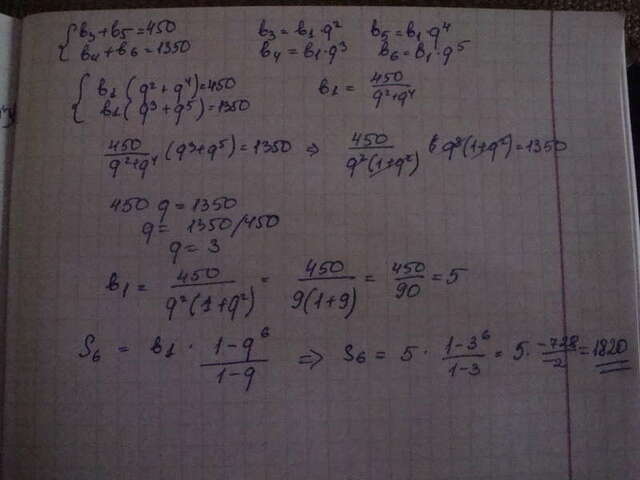 { b₃+b₅=450    b₃=b₁·q²    b₅=b₁·q⁴
{ b₄+b₆=1350    b₄=b₁·q³    b₆=b₁·q⁵
{ b₁(q²+q⁴)=450    b₁ = 450/(q²+q⁴)
{ b₁(q³+q⁵)=1350
450/(q²+q⁴) (q³+q⁵)=1350 ⇒ 450/(q²(1+q²)) · q³(1+q²)=1350
450 q = 1350
q = 1350/450
q = 3
b₁ = 450/(q²(1+q²)) = 450/(9(1+9)) = 450/90 = 5
S₆ = b₁ · (1-q⁶)/(1-q) ⇒ S₆ = 5 · (1-3⁶)/(1-3) = 5 · -728/-2 = 1820